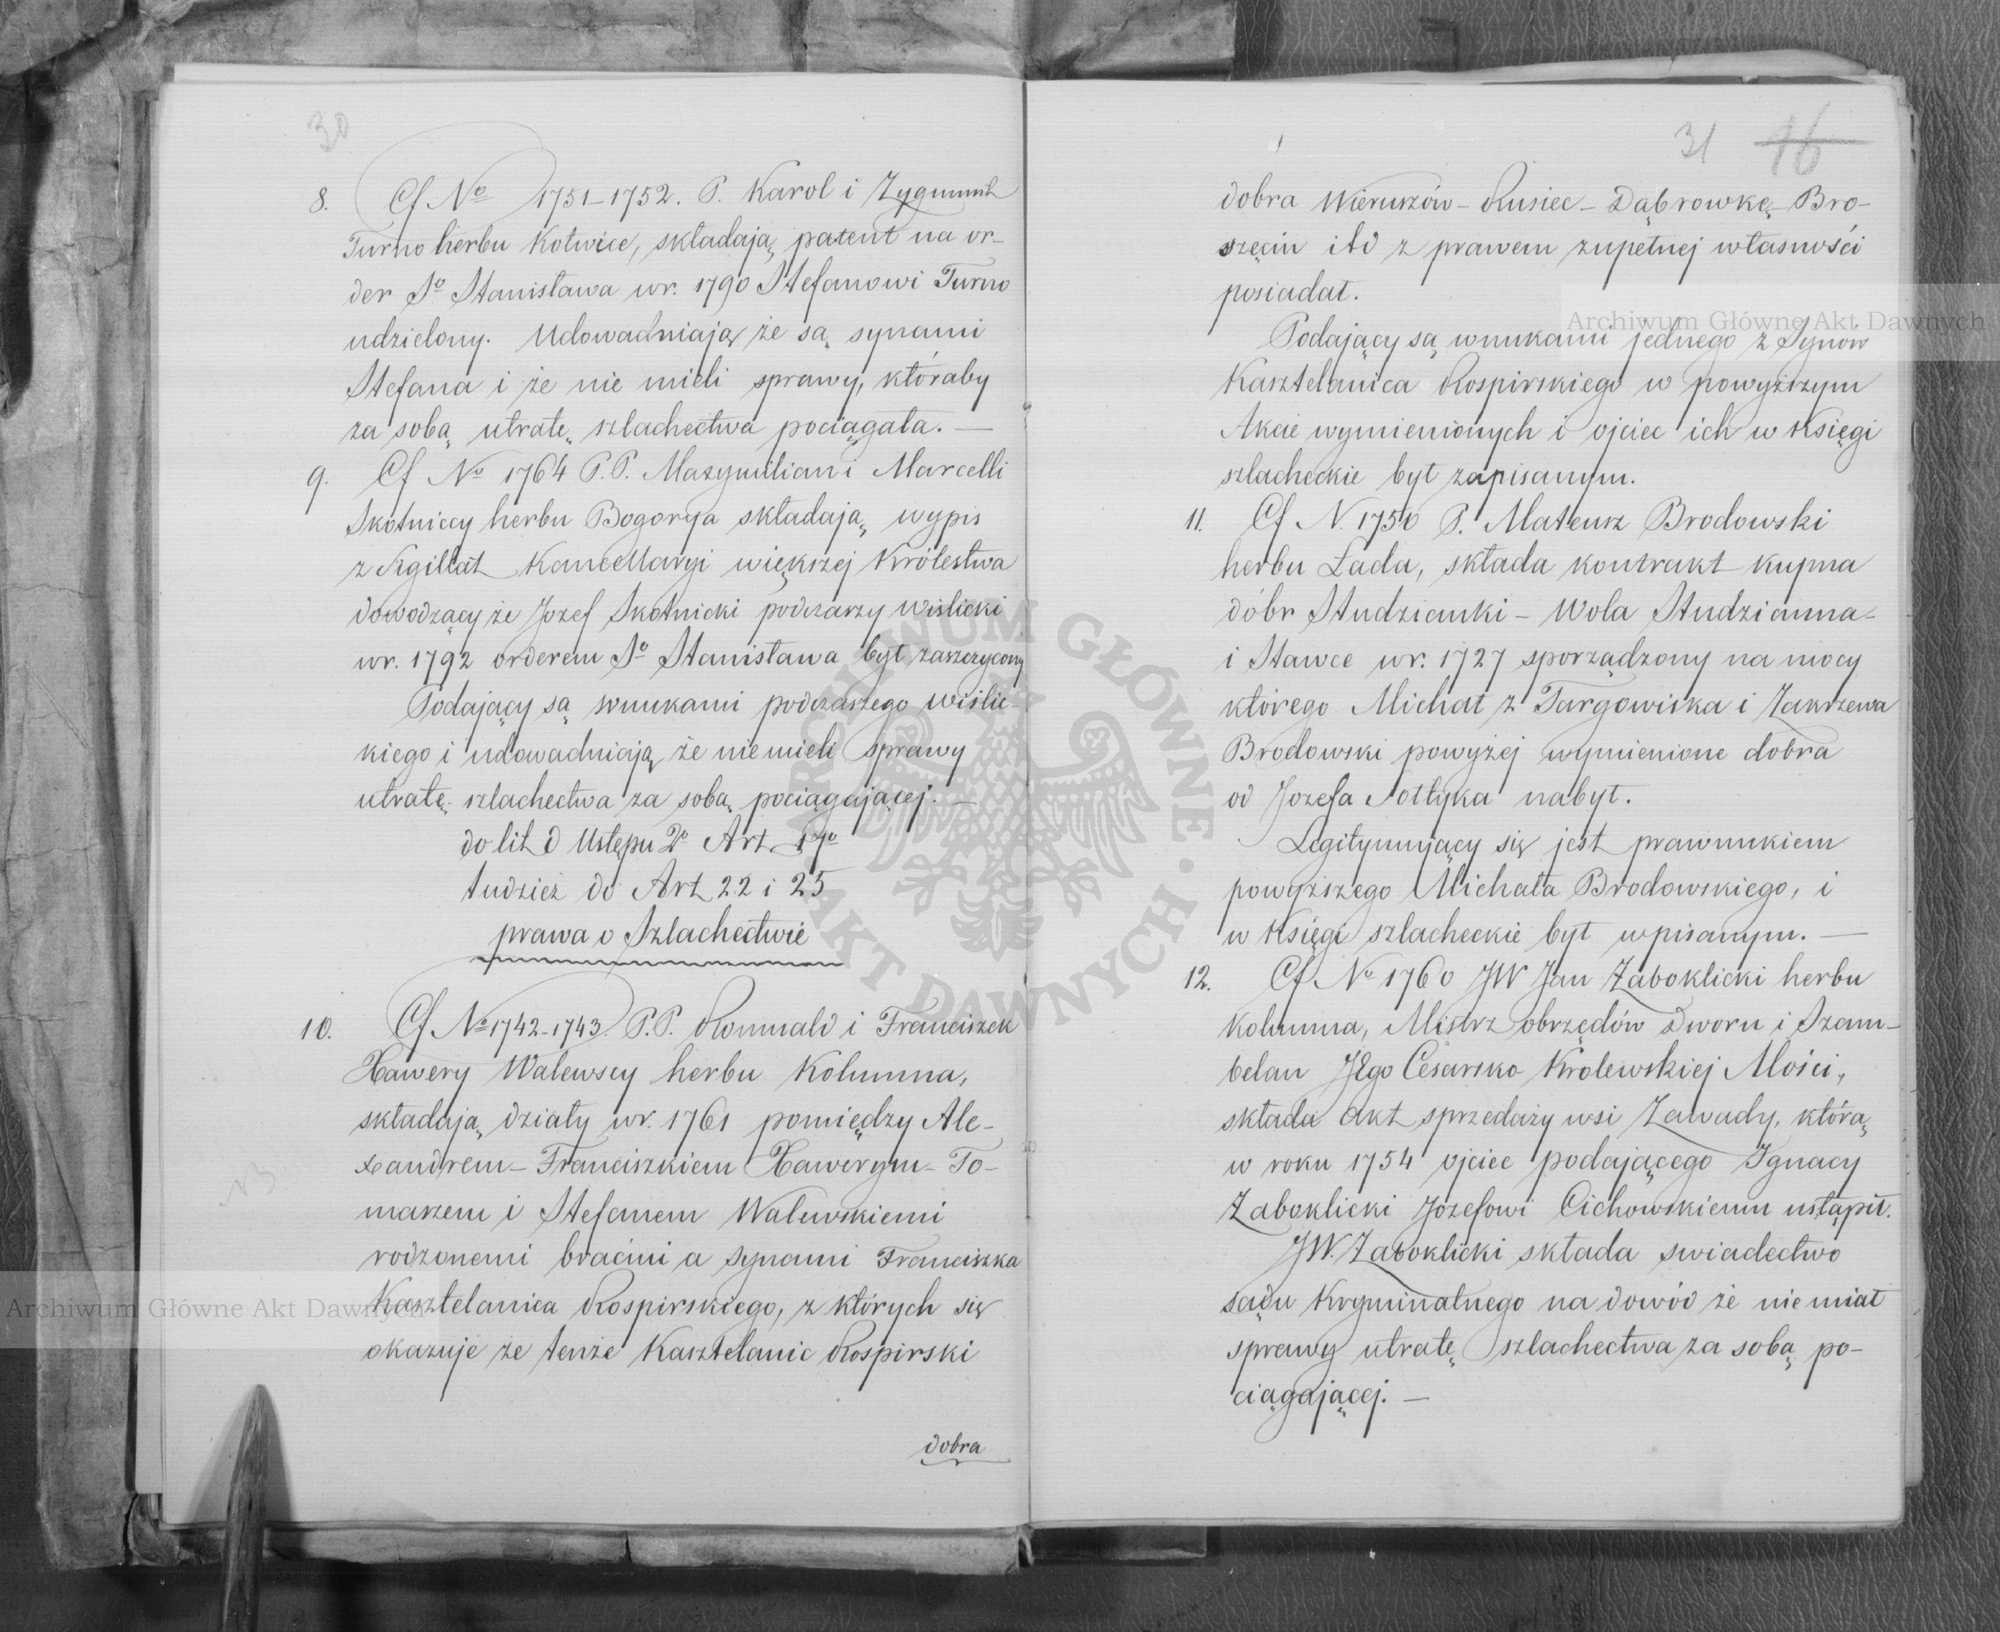 30
8. Cf No 1751-1752. P. Karol i Zygmunt
Turno herbu Kotwice, składają patent na or-
der So Stanisława w r. 1790 Stefanowi Turno
udzielony. Udowadniają że są synami
Stefana i że nie mieli sprawy, któraby
za sobą utratę szlachectwa pociągała. —
9. Cf No 1764 P.P. Maxymilian i Marcelli
Skotniccy herbu Bogorya składają wypis
z Sigillat Kancellaryi większej Królestwa
dowodzący że Jozef Skotnicki podczaszy wislicki
w r. 1792 orderem So Stanisława był zaszczycony
Podający są wnukami podczaszego wiślic-
kiego i udowadniają że nie mieli sprawy
utratę szlachectwa za sobą pociągającej. —
do lit d Ustępu 2o Art. 17o
tudzież do Art 22 i 25
prawa o Szlachectwie
10. Cf No 1742-1743 P.P. Romuald i Franciszek
Xawery Walewscy herbu Kolumna,
składają działy w r. 1761 pomiędzy Ale-
xandrem - Franciszkiem Xawerym - To-
maszem i Stefanem Walewskiemi
rodzonemi braćmi a synami Franciszka
Kasztelanica Rospirskiego, z których się
okazuje że tenże Kasztelanic Rospirski
dobra
31 16
dobra Wieruszów - Rusiec - Dąbrowkę - Bro-
szęcin itd z prawem zupełnej własności
posiadał.
Podający są wnukami jednego z Synów
Kasztelanica Rospirskiego w powyższym
Akcie wymienionych i ojciec ich w Księgi
szlacheckie był zapisanym.
11. Cf N. 1750 P. Mateusz Brodowski
herbu Łada, składa kontrakt kupna
dóbr Studzianki - Wola Studzianna -
i Stawce w r. 1727 sporządzony na mocy
którego Michał z Targowiska i Zakrzewa
Brodowski powyżej wymienione dobra
od Jozefa Sołtyka nabył.
Legitymujący się jest prawnukiem
powyższego Michała Brodowskiego, i
w Księgi szlacheckie był wpisanym. —
12. Cf No 1760 JW Jan Zaboklicki herbu
Kolumna, Mistrz obrzędów Dworu i Szam-
belan JEgo Cesarsko Krolewskiej Mości,
składa akt sprzedaży wsi Zawady, którą
w roku 1754 ojciec podającego Ignacy
Zaboklicki Józefowi Cichowskiemu ustąpił.
JW. Zaboklicki składa swiadectwo
sądu Kryminalnego na dowód że nie miał
sprawy utratę szlachectwa za sobą po-
ciągającej. —
Archiwum Główne Akt Dawnych
Archiwum Główne Akt Dawnych
ARCHIWUM GŁÓWNE AKT DAWNYCH